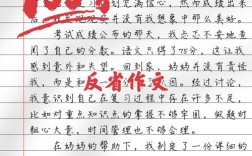 划充满信心,然而成绩出来
后,我发现现实并没有我想象中那么美好。
考试成绩公布的那天,我忐忑不安地查
阅了自己的分数。语文只得了75分,这让我
感到意外和失望。回到家,妈妈并没有责怪
我,而是和
因。经过讨论,我
反省作文
意识到自己在复习过程中存在许多不足,
比如对重点知识的掌握不够牢固,做题时
粗心大意,时间管理也不够合理。
在妈妈的帮助下,我制定了一份详细的